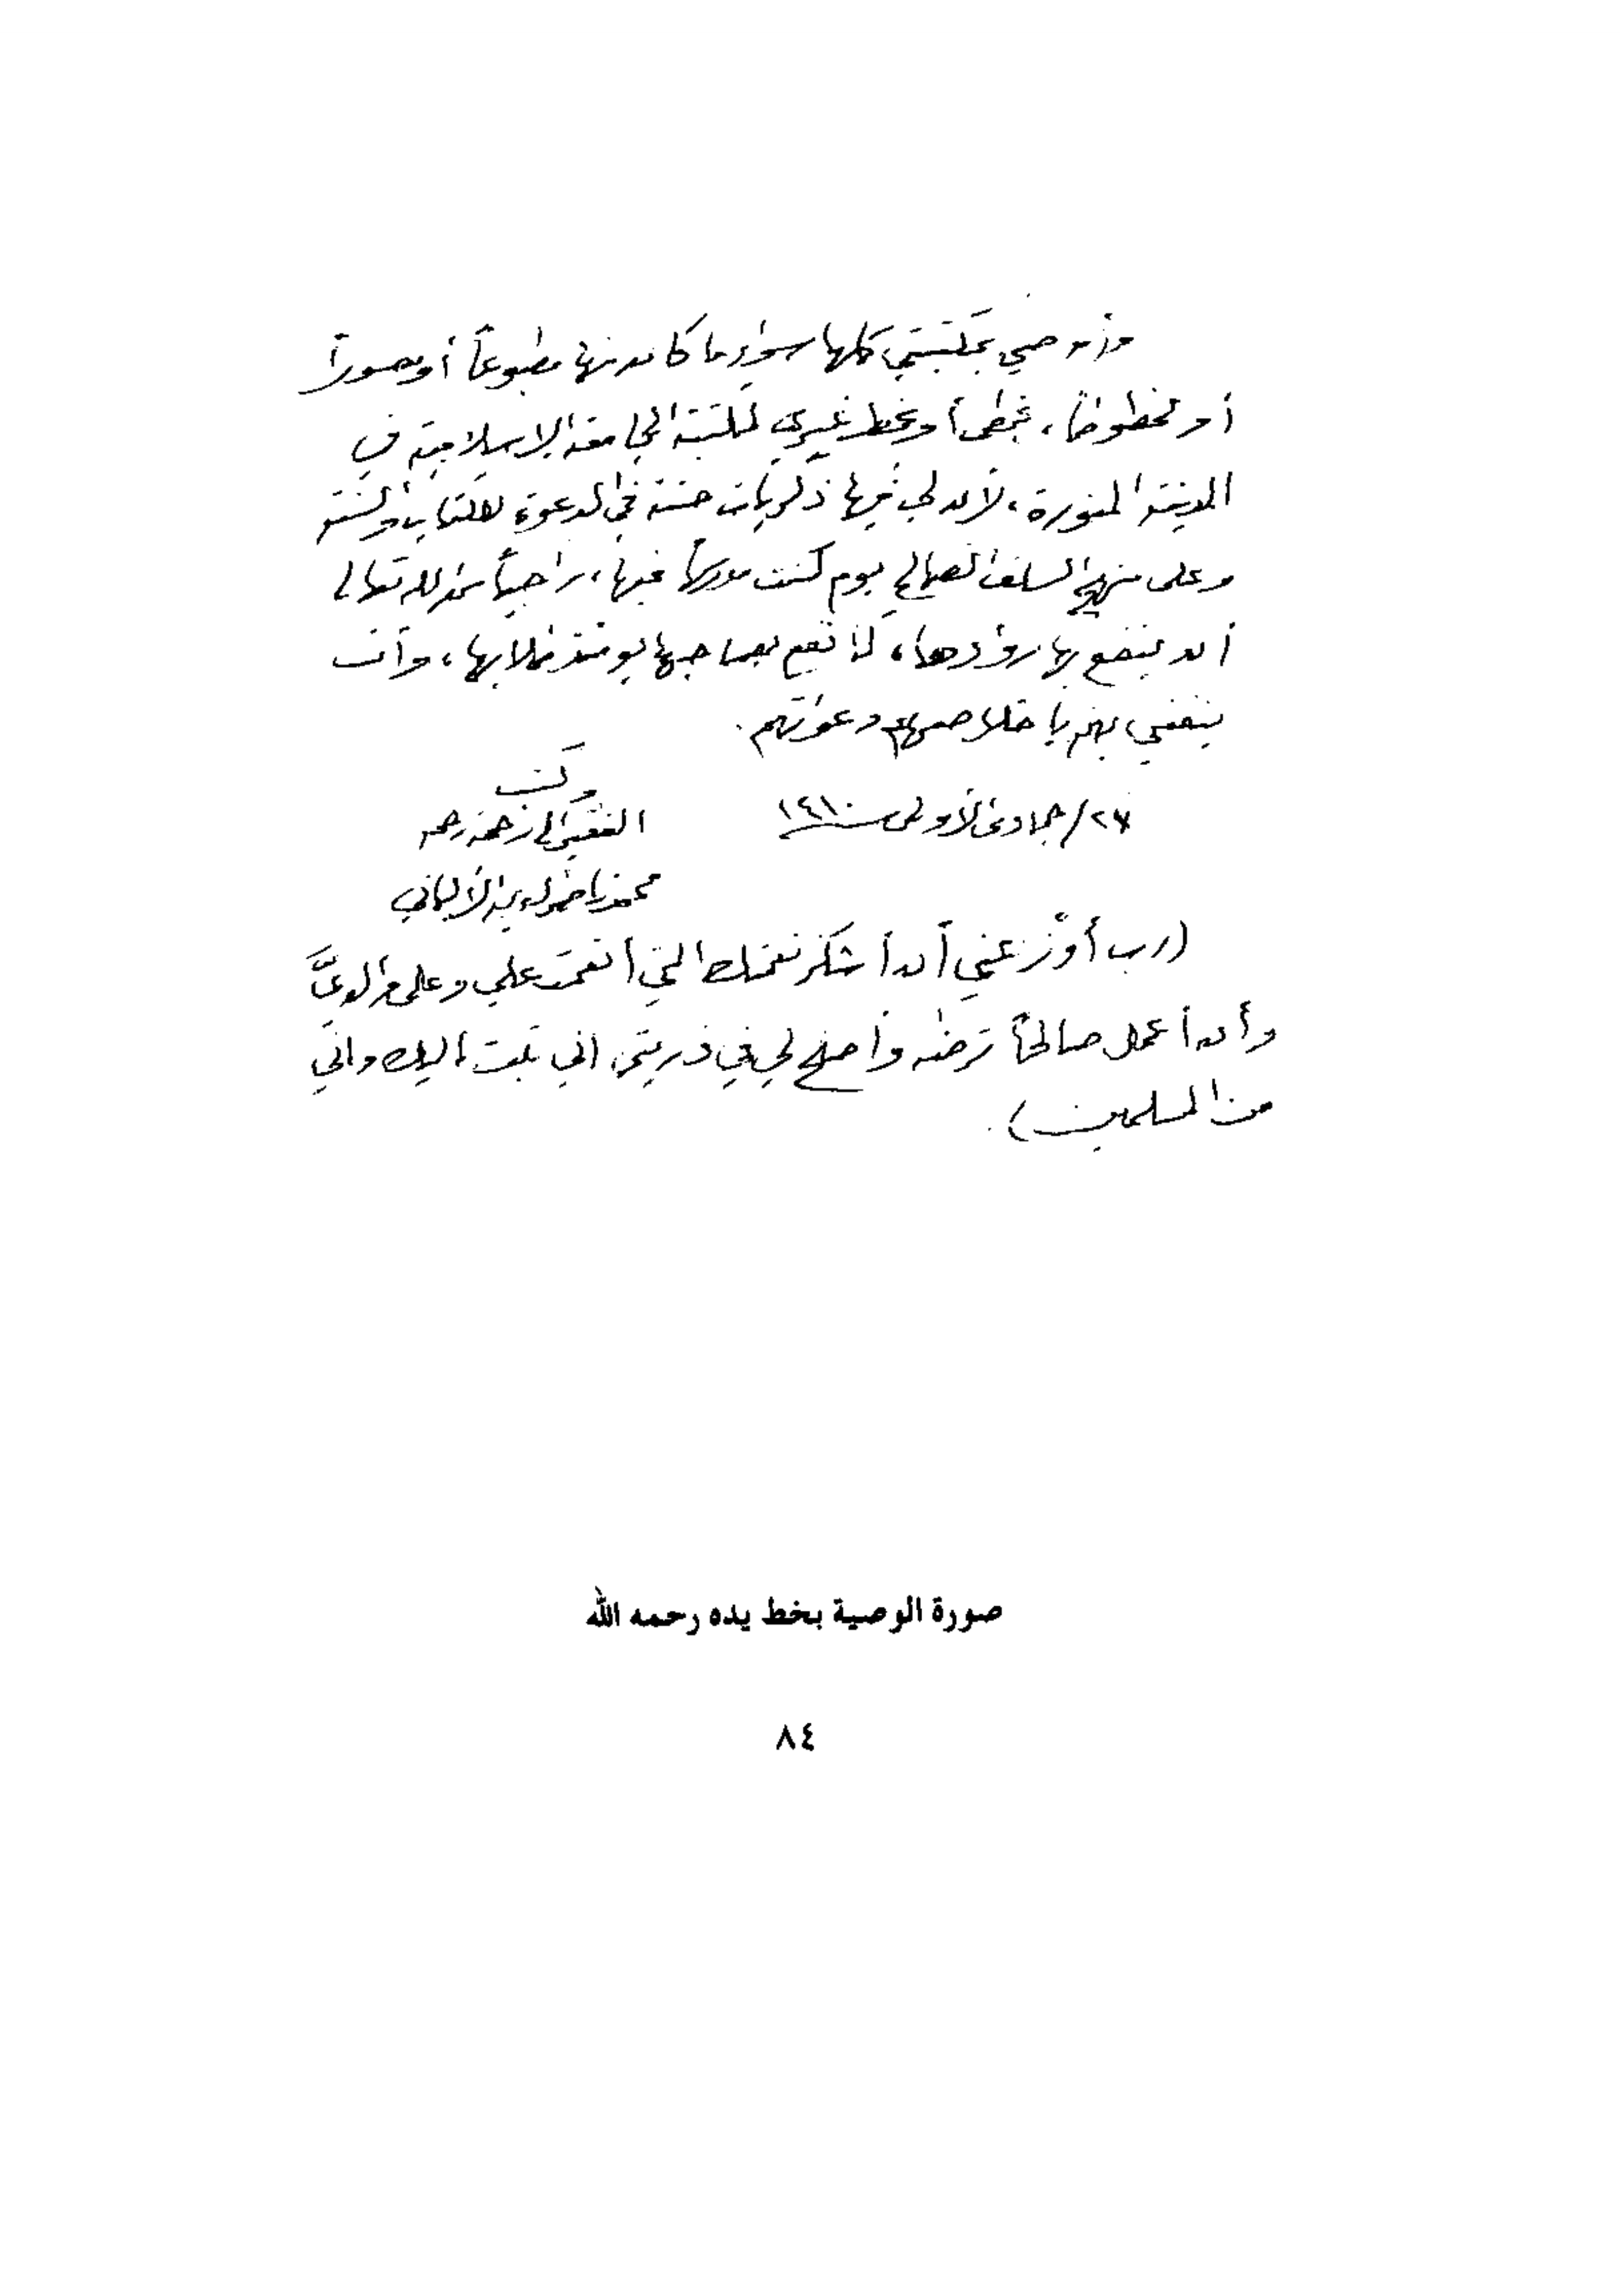 وأوصي بمكتبتي كلها سواء ما كان منها مطبوعاً أو مصوراً
أو مخطوطاً، بخطي أو بخط غيري لمكتبة الجامعة الإسلامية في
المدينة المنورة، لأن لي فيها ذكريات حسنة في الدعوة للكتاب والسنة
وعلى منهج السلف الصالح يوم كنت مدرساً فيها، راجياً من الله تعالى
أن ينفع بها روادها، كما نفع بصاحبها يومئذ طلابها، وأن
ينفعني بهم بإخلاصهم ودعواتهم.
وكتب
٢٧/جمادى الأولى ١٤١٠ الفقير إلى رحمة ربه
محمد ناصر الدين الألباني
(رب أوزعني أن أشكر نعمتك التي أنعمت علي وعلى والديَّ
وأن أعمل صالحاً ترضاه وأصلح لي في ذريتي إني تبت إليك وإني
من المسلمين).
صورة الوصية بخط يده رحمه الله
٨٤